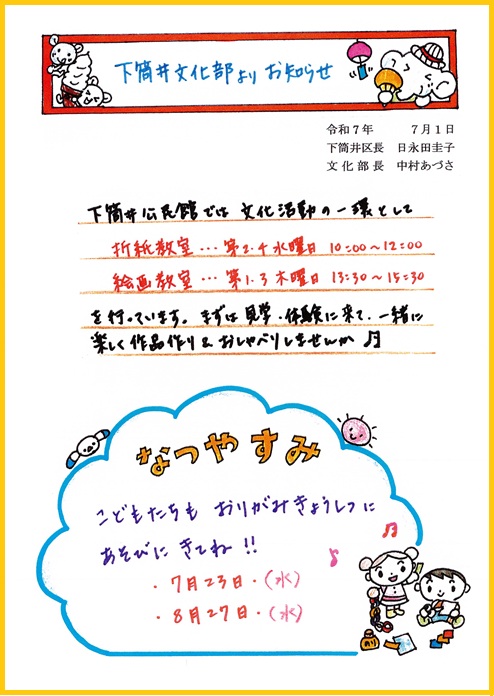 下筒井文化部より お知らせ
令和7年 7月1日
下筒井区長 日永田圭子
文化部長 中村あづさ
下筒井公民館では 文化活動の一環として
折紙教室…第2.4水曜日 10:00～12:00
絵画教室…第1.3木曜日 13:30～15:30
を行っています。まずは見学・体験に来て、一緒に
楽しく作品作り&おしゃべりしませんか♬
なつやすみ
こどもたちも おりがみきょうしつに
あそびに きてね!!
・7月23日・(水)
・8月27日・(水)
のり